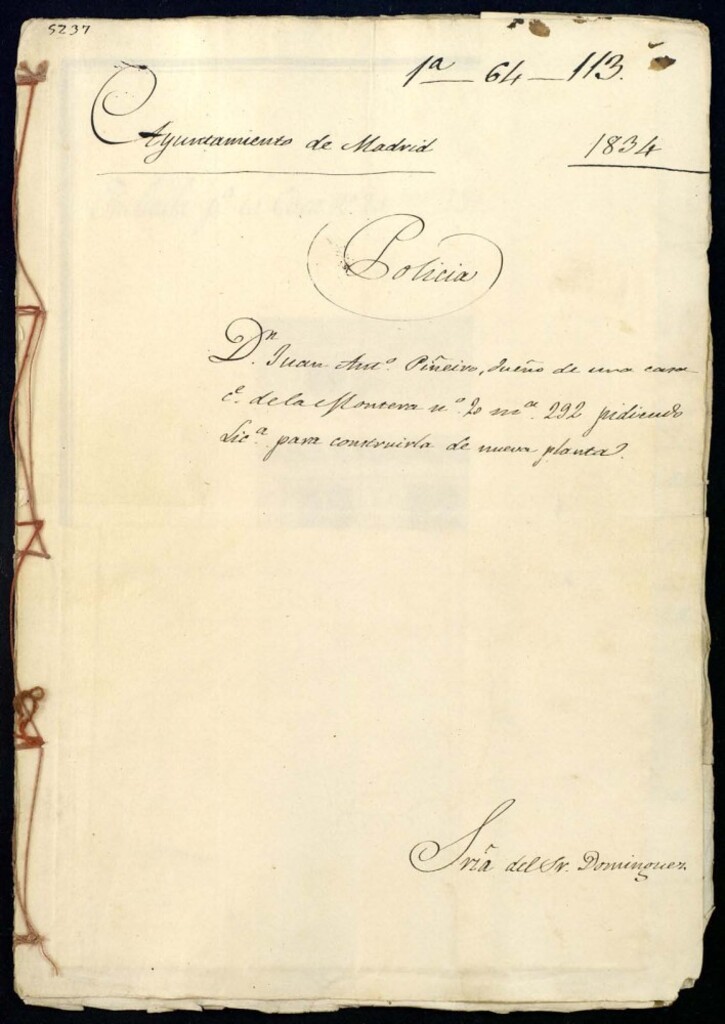 5237
1ª 64 113.
Ayuntamiento de Madrid
1834
Policia
Dⁿ. Juan Antº. Piñeiro, dueño de una casa
cᵉ. de la Montera nº. 20 mª. 292 pidiendo
Licª. para construirla de nueva planta.
Sríª del Sr. Dominguez